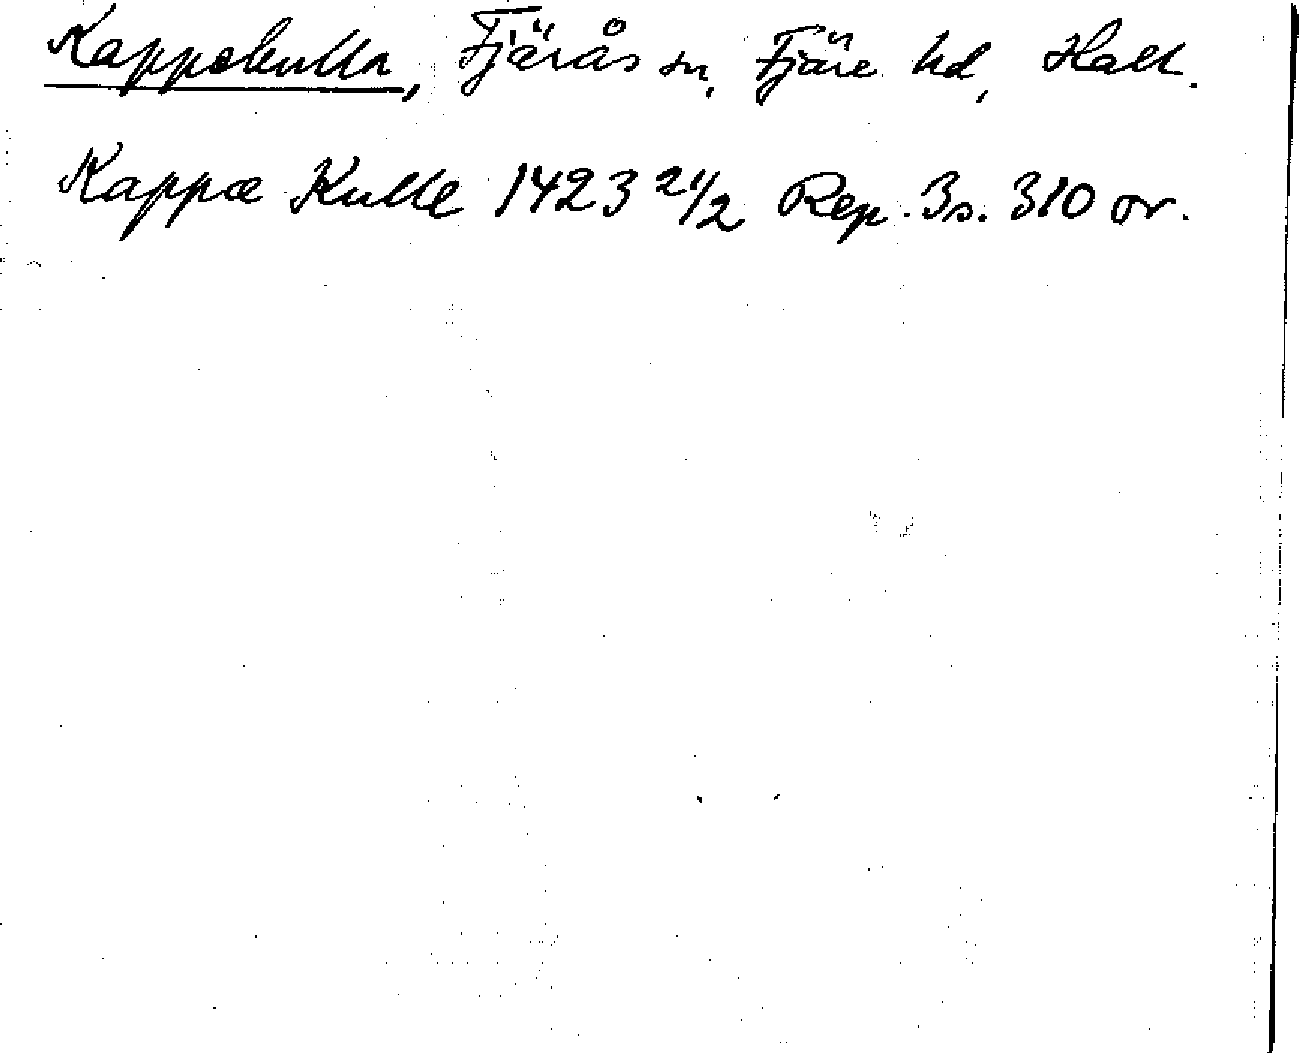 Kappekulla, Fjärås sn, Fjäre hd, Hall.
Kappæ Kulle 1423 21/2 Rep. 3 s. 310 or.